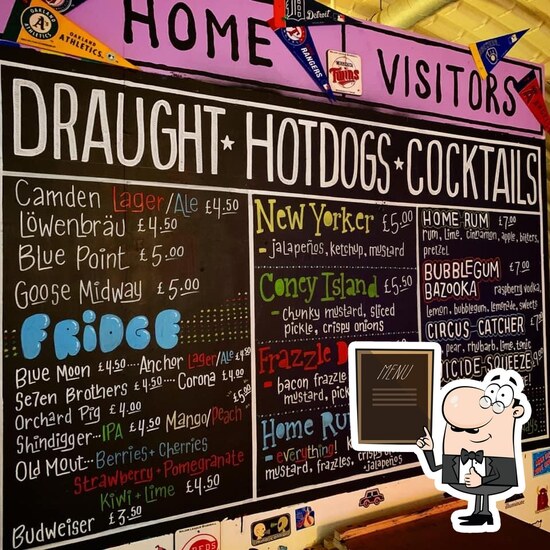 HOME VISITORS
OAKLAND ATHLETICS
Detroit
RANGERS
MINNESOTA
Twins
DRAUGHT ★ HOTDOGS ★ COCKTAILS
Camden Lager/Ale £4.50
Löwenbräu £4.50
Blue Point £5.00
Goose Midway £5.00
FRIDGE
Blue Moon £4.50 .... Anchor Lager/Ale £4.80
Se7en Brothers £4.50 .... Corona £4.00
Orchard Pig £4.00
Shindigger... IPA £4.50 Mango/Peach £5.00
Old Mout... Berries + Cherries
Strawberry + Pomegranate
Kiwi + Lime £4.50
Budweiser £3.50
New Yorker £5.00
- jalapeños, ketchup, mustard
Coney Island £5.50
- chunky mustard, sliced
pickle, crispy onions
Frazzle
- bacon frazzle
mustard,
Home Run
- everything!
mustard, frazzles,
jalapeños
HOME RUM £7.00
rum, lime, cinnamon, apple, bitters,
pretzel
BUBBLEGUM £7.00
BAZOOKA raspberry vodka,
lemon, bubblegum, lemonade, sweets
CIRCUS-CATCHER £7.00
pear, rhubarb, lime, tonic
SQUEEZE
MENU
REDS